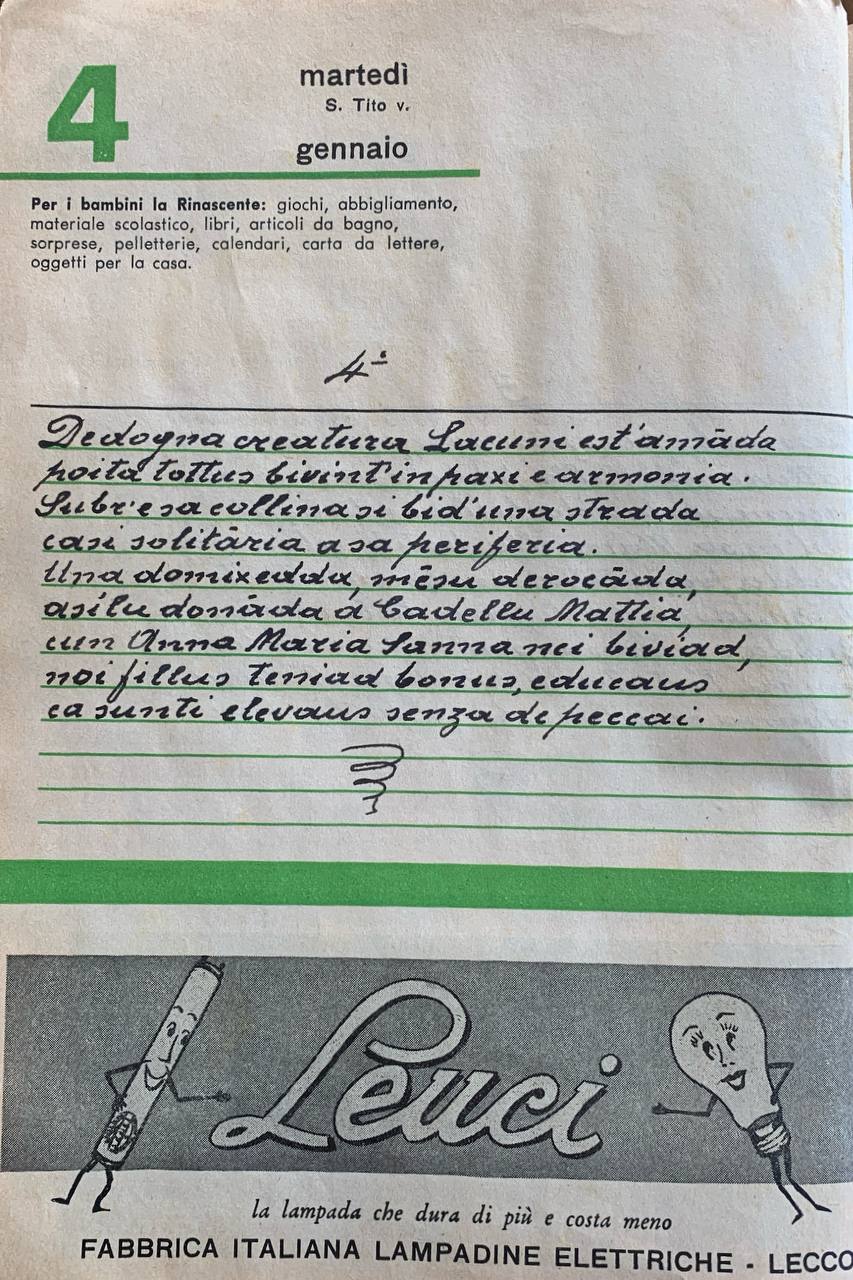 4
martedì
S. Tito v.
gennaio
Per i bambini la Rinascente: giochi, abbigliamento,
materiale scolastico, libri, articoli da bagno,
sorprese, pelletterie, calendari, carta da lettere,
oggetti per la casa.
4°
De dogna creatura Lacuni est'amāda
poita tottus bivint'in paxi e armonia.
Subr'e sa collina si bid'una strada
casi solitāria a sa periferia.
Una domixedda, mēsu derocāda,
asilu donāda a Cadellu Mattia,
cun Anna Maria Sanna nci biviad,
noi fillus teniad bonus, educaus
ca sunti elevaus senza de peccai.
Leuci
la lampada che dura di più e costa meno
FABBRICA ITALIANA LAMPADINE ELETTRICHE - LECCO